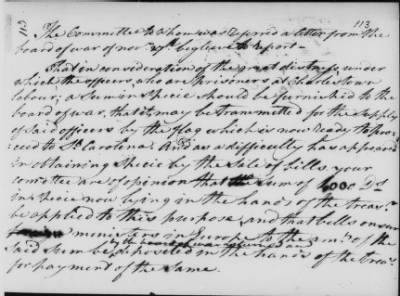 113
113
The Committee to whom was referred a letter from the
board of war of nov. 27th beg leave to report —
That in consideration of the great distress under
which the officers, who are prisoners at Charlestown
labour; a Sum in Specie should be furnished to the
board of war, that it may be transmitted for the supply
of said officers by the flag which is now ready to pro-
ceed to So. Carolina. And as a difficulty has appeared
in obtaining specie by the Sale of bills your
com'ittee are of opinion that the sum of 4000 Drs
in specie now lying in the hands of the treasr.
be applied to this purpose, and that bills on our
ministers in Europe to the amt. of the
said sum be deposited in the hands of the treasr.
for payment of the Same.